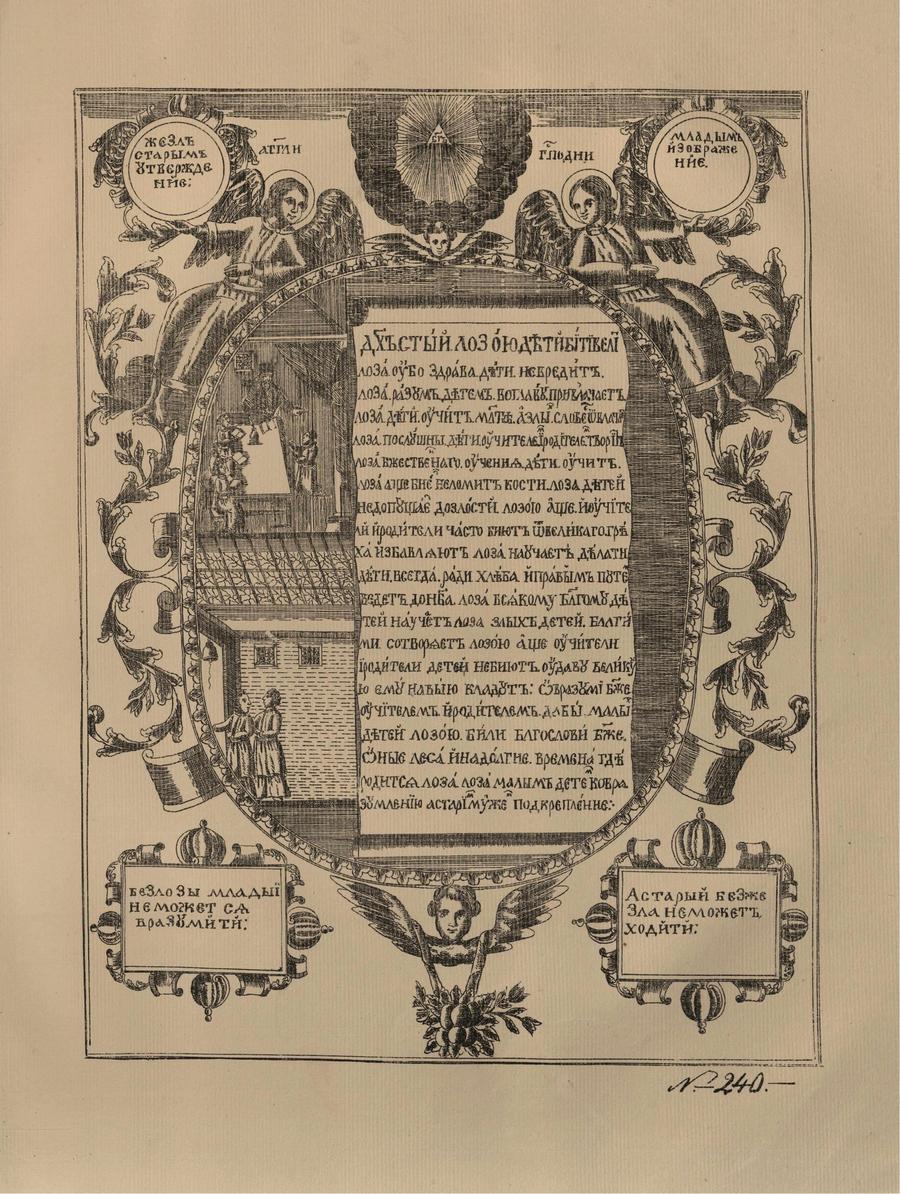 ЖЕЗЛЪ
СТАРЫМЪ
ꙊТВЕРЖДЕ
НИЕ:
АГГ҃ЛИ
БГ҃Ъ
ГП҃ОДНИ
МЛАДЫМЪ
ИЗОБРАЖЕ
НИЕ.
ДХ҃Ъ СТЫЙ ЛОЗОЮ ДѢТИ БИТИ ВЕЛІ
ЛОЗА ОУБО ЗДРАВА. ДѢТИ. НЕВРЕДИТЪ.
ЛОЗА. РАЗꙊМЪ. ДѢТЕМЪ. ВОГЛАВꙊ ПРИВЛАЧАЕТЪ
ЛОЗА. ДѢТИ. ОУЧИТЪ. АЗЛЫ.
ЛОЗА. ПОСЛꙊШНЫ. ДѢТИ.
ЛОЗА БЖЕСТВЕНАГО. ОУЧЕНИѦ. ДѢТИ. ОУЧИТЪ.
ЛОЗА АЩЕ БИЕ НЕЛОМИТЪ КОСТИ. ЛОЗА. ДѢТЕЙ
НЕДОПꙊЩАЕ ДОЗЛОСТИ. ЛОЗОЮ АЩЕ. ИОУЧИТЕ
ЛИ ИРОДИТЕЛИ ЧАСТО БИЮТЪ ѾВЕЛИКАГО ГРѢ
ХА ИЗБАВЛѦЮТЪ ЛОЗА НАꙊЧАЕТЪ ДѢЛАТИ
ДѢТИ. ВСЕГДА. РАДИ ХЛѢБА. ИПРАВЫМЪ ПꙊТЕ
ВЕДЕТЪ ЛОЗА ВСѦКОМꙊ БЛГОМꙊ ДѢ
ТЕЙ НАꙊЧЕТЪ ЛОЗА ЗЛЫХЪ ДЕТЕЙ. БЛАГИ
МИ. СОТВОРѦЕТЪ ЛОЗОЮ АЩЕ ОУЧИТЕЛИ
ІРОДИТЕЛИ ДЕТЕЙ НЕБИЮТЪ ОУДАВꙊ ВЕЛИКꙊ
Ю ЕМꙊ НАВЫЮ КЛАДꙊТЪ: БЖЕ
ОУЧІТЕЛЕМЪ. ИРОДИТЕЛЕМЪ. ДАБЫ. МАЛЫ
ДѢТЕЙ ЛОЗОЮ. БИЛИ БЛГОСЛОВИ БЖЕ.
ѾНЫЕ ЛЕСА ИНАДОЛГИЕ. ВРЕМЕНА ГДѢ
РОДИТСѦ ЛОЗА ЛОЗА МАЛЫМЪ ДЕТЕ КОВРА
ЗꙊМЛЕНІЮ АСТАРІМꙊЖЕ ПОДКРЕПЛЕНИЕ:
БЕЗЛОЗЫ МЛАДЫІ
НЕМОЖЕТ СѦ
ВРАЗꙊМИТИ:
АСТАРЫЙ БЕЗЖЕ
ЗЛА НЕМОЖЕТЪ
ХОДИТИ:
№ 240.—